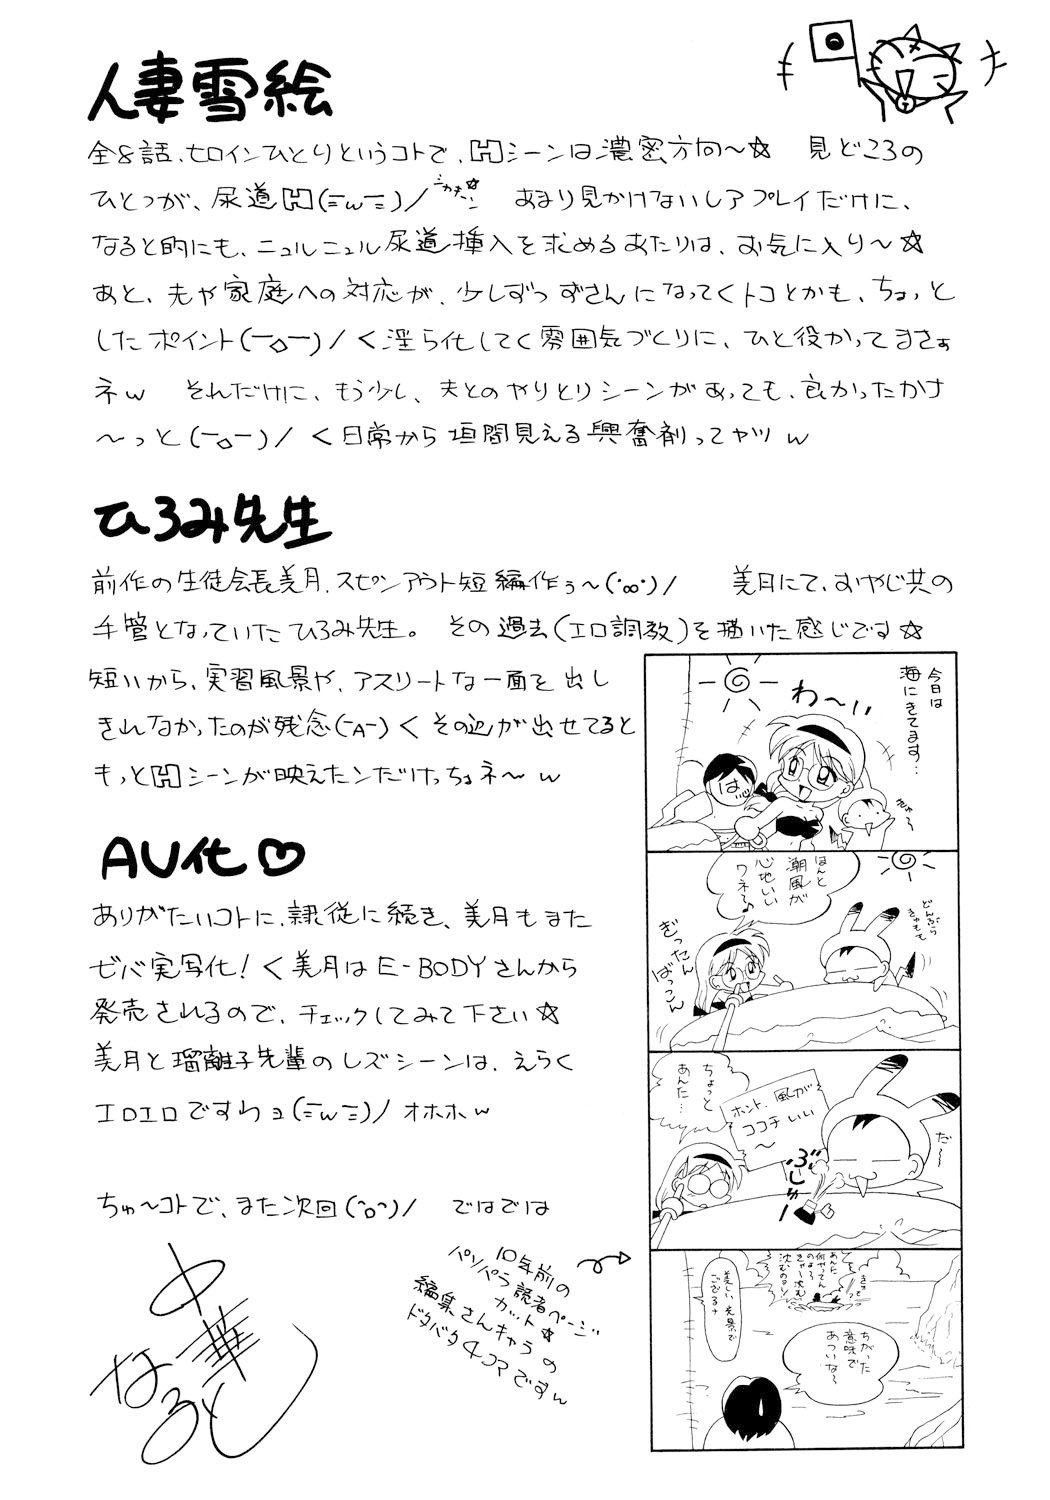 人妻雪絵
全8話、ヒロインひとりというコトで、Hシーンは濃密方向〜☆ 見どころの
ひとつが、尿道H(ニwニ)/ あまり見かけないレアプレイだけに、
なると的にも、ニュルニュル尿道挿入を求めるあたりは、お気に入り〜☆
あと、夫や家庭への対応が、少しずつずさんになってくトコとかも、ちょっと
したポイント(ーoー)/く淫ら化してく雰囲気づくりに、ひと役かってまさぁ
ネw それだけに、もう少し、夫とのやりとりシーンがあっても、良かったかな
〜っと(ーoー)/く日常から垣間見える興奮剤ってヤツw
ひろみ先生
前作の生徒会長美月、スピンアウト短編作ぅ〜(・∞・)/ 美月にて、おやじ共の
手管となっていたひろみ先生。 その過去(エロ調教)を描いた感じです☆
短いから、実習風景や、アスリートな一面を出し
きれなかったのが残念(ーAー)く その辺が出せてると
もっとHシーンが映えたンだけっちょネ〜w
AV化♡
ありがたいコトに、隷従に続き、美月もまた
ゼバ実写化!く美月はE-BODYさんから
発売されるので、チェックしてみて下さい☆
美月と瑠離子先輩のレズシーンは、えらく
エロエロですわョ(ニwニ)/オホホw
ちゅ〜コトで、また次回(^o^)/ ではでは
中華
なると
10年前の
パソパラ読者ページ
カット☆
編集さんキャラの
ドタバタ4コマですw
今日は
海にきてます…
わ〜い
は
きゃ〜
ほんと
潮風が
心地いい
ワネ〜♪
どんぶら
ぎったん
ばっこん
ちょっと
あんた…
ホント、風が
ココチいい
〜
だ〜
ぶしゅー
あんた
何やってん
のよ〜
きゃー沈む
沈む〜
美しい光景で
ござるナ
ちがった
意味で
あついな〜